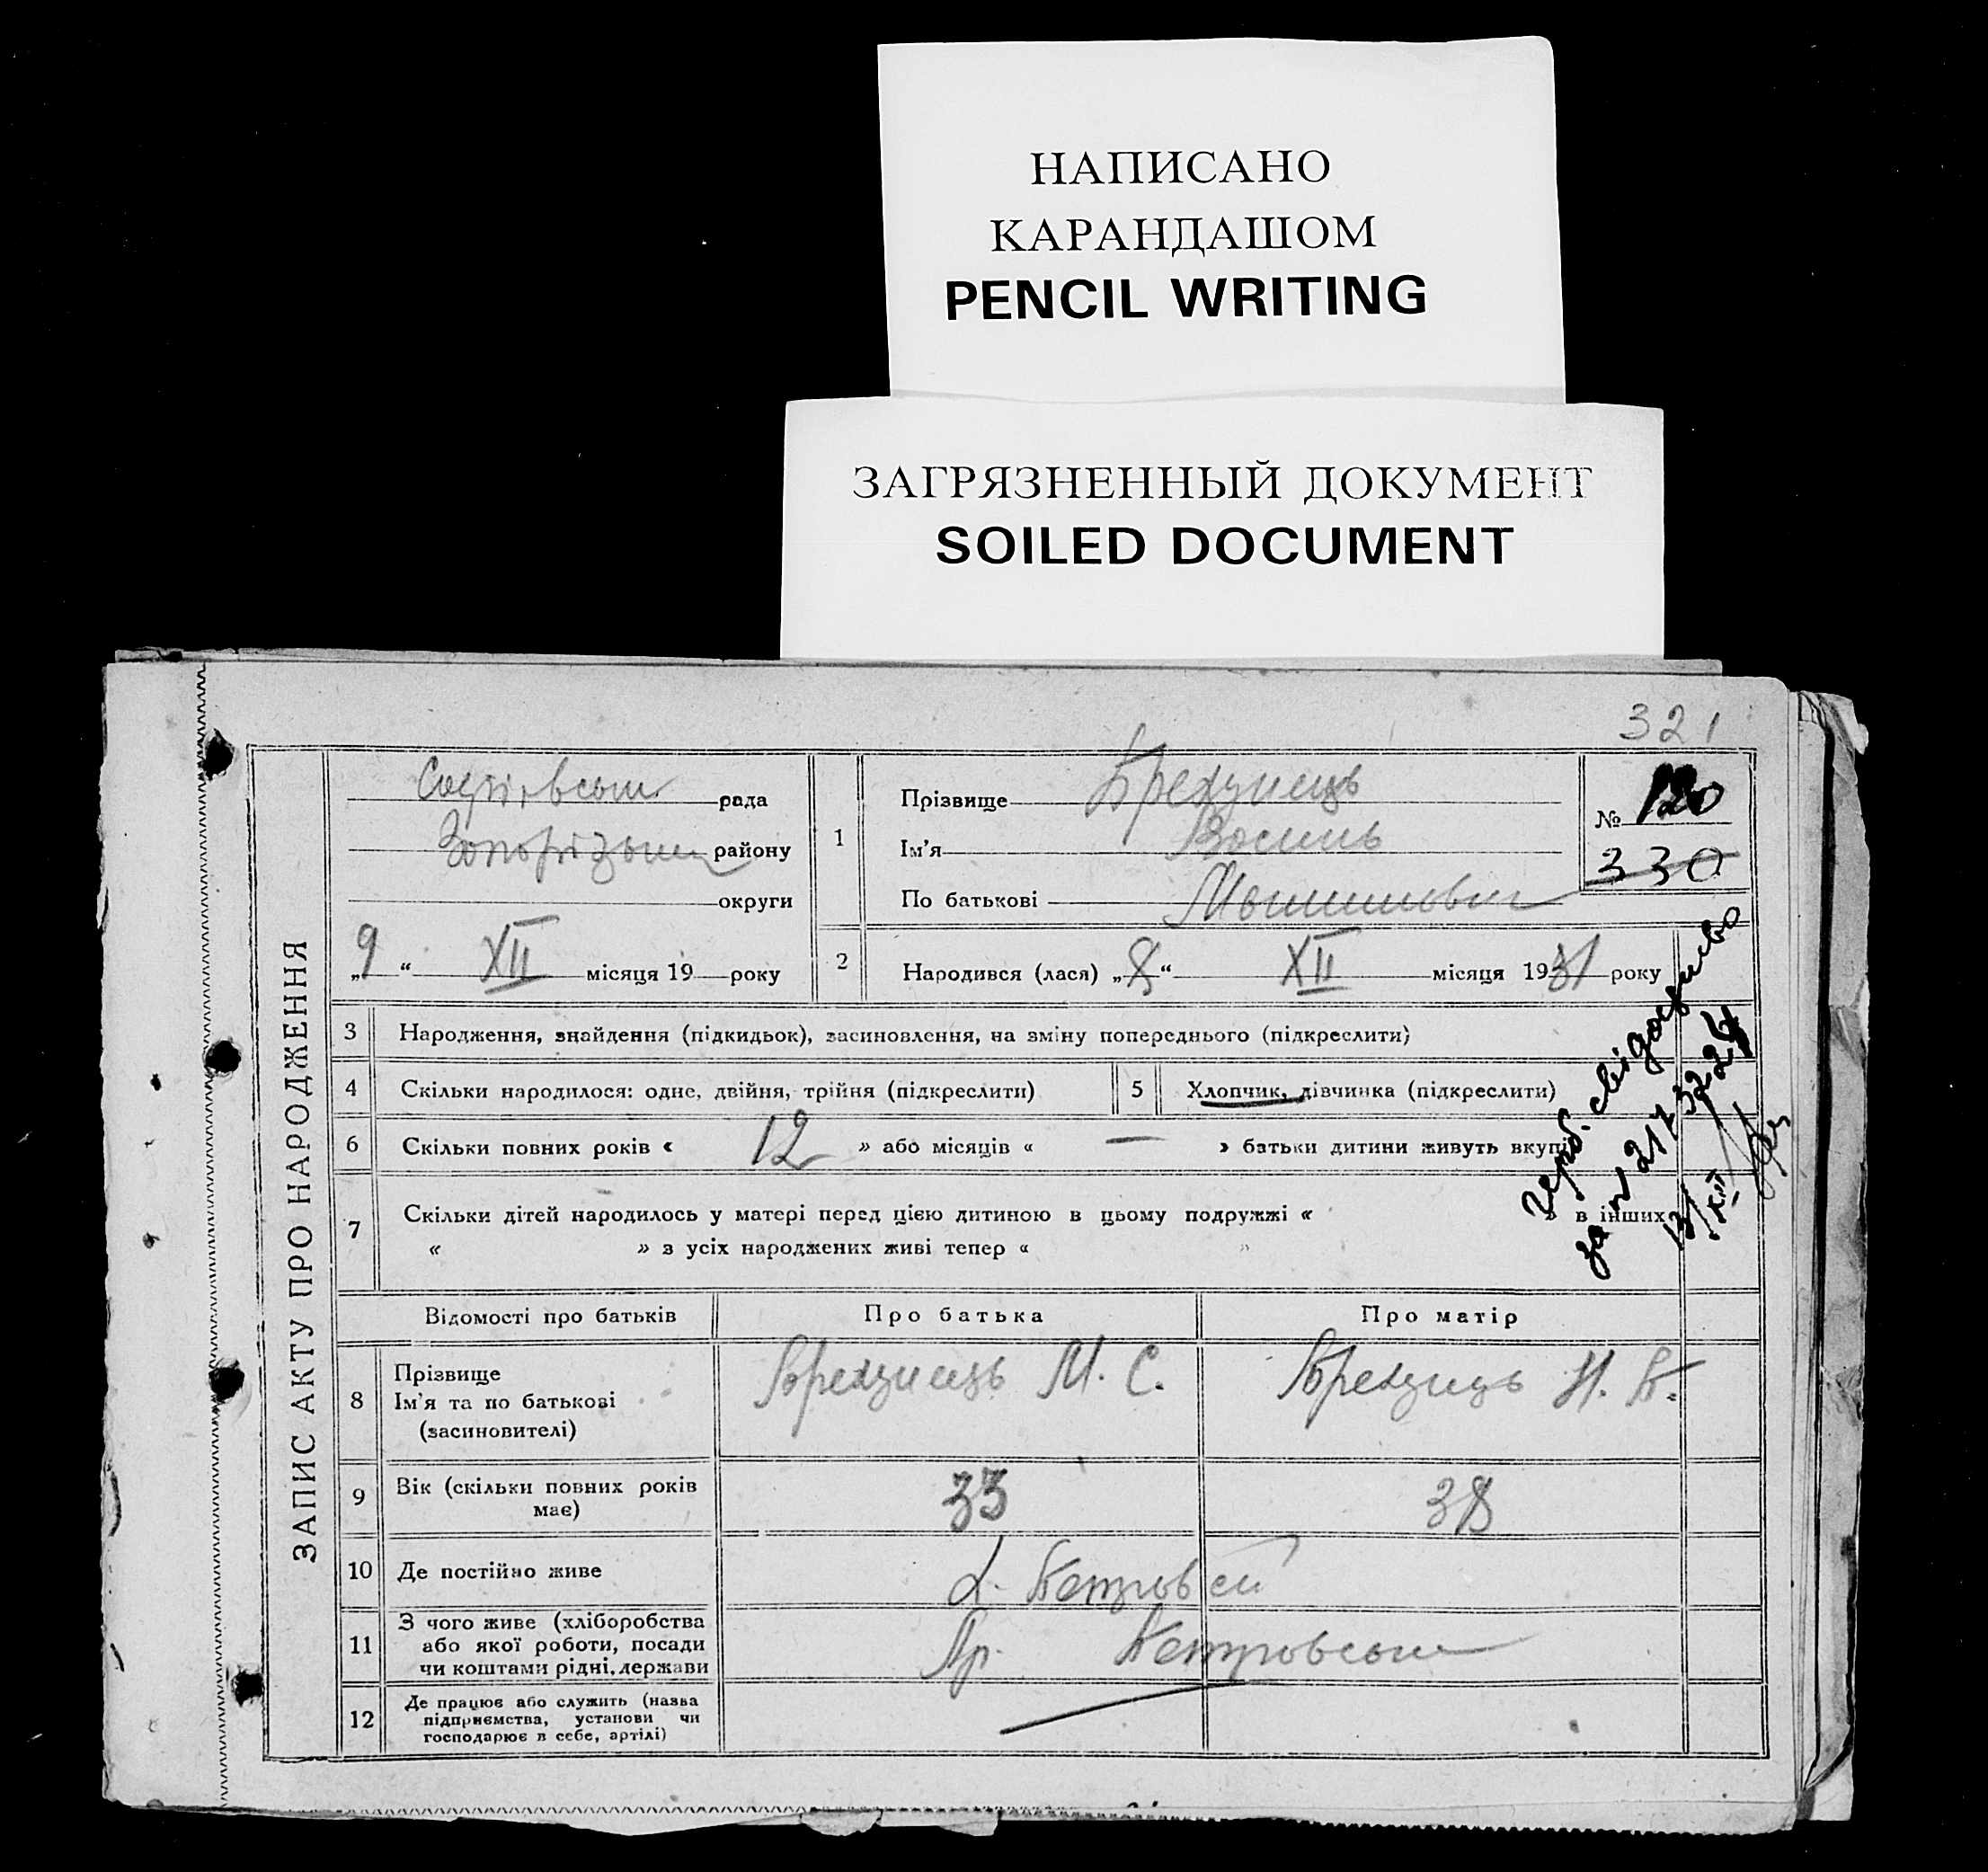 НАПИСАНО
КАРАНДАШОМ
PENCIL WRITING
ЗАГРЯЗНЕННЫЙ ДОКУМЕНТ
SOILED DOCUMENT
321
ЗАПИС АКТУ ПРО НАРОДЖЕННЯ
рада
району
округи
„9“ XII місяця 19 року
1
Прізвище Брехунець
Ім'я Василь
По батькові
№ 120
330
2
Народився (лася) „8“ XII місяця 1931 року
3 Народження, знайдення (підкидьок), засиновлення, на зміну попереднього (підкреслити)
4 Скільки народилося: одне, двійня, трійня (підкреслити)
5 Хлопчик, дівчинка (підкреслити)
6 Скільки повних років « 12 » або місяців « — » батьки дитини живуть вкупі
7 Скільки дітей народилось у матері перед цією дитиною в цьому подружжі « » в інших
« » з усіх народжених живі тепер « »
Відомості про батьків Про батька Про матір
8 Прізвище
Ім'я та по батькові
(засиновителі)
Брехунець М. С. Брехунець Н. В.
9 Вік (скільки повних років
має)
33 38
10 Де постійно живе
11 З чого живе (хліборобства
або якої роботи, посади
чи коштами рідні, держави
12 Де працює або служить (назва
підприємства, установи чи
господарює в себе, артілі)